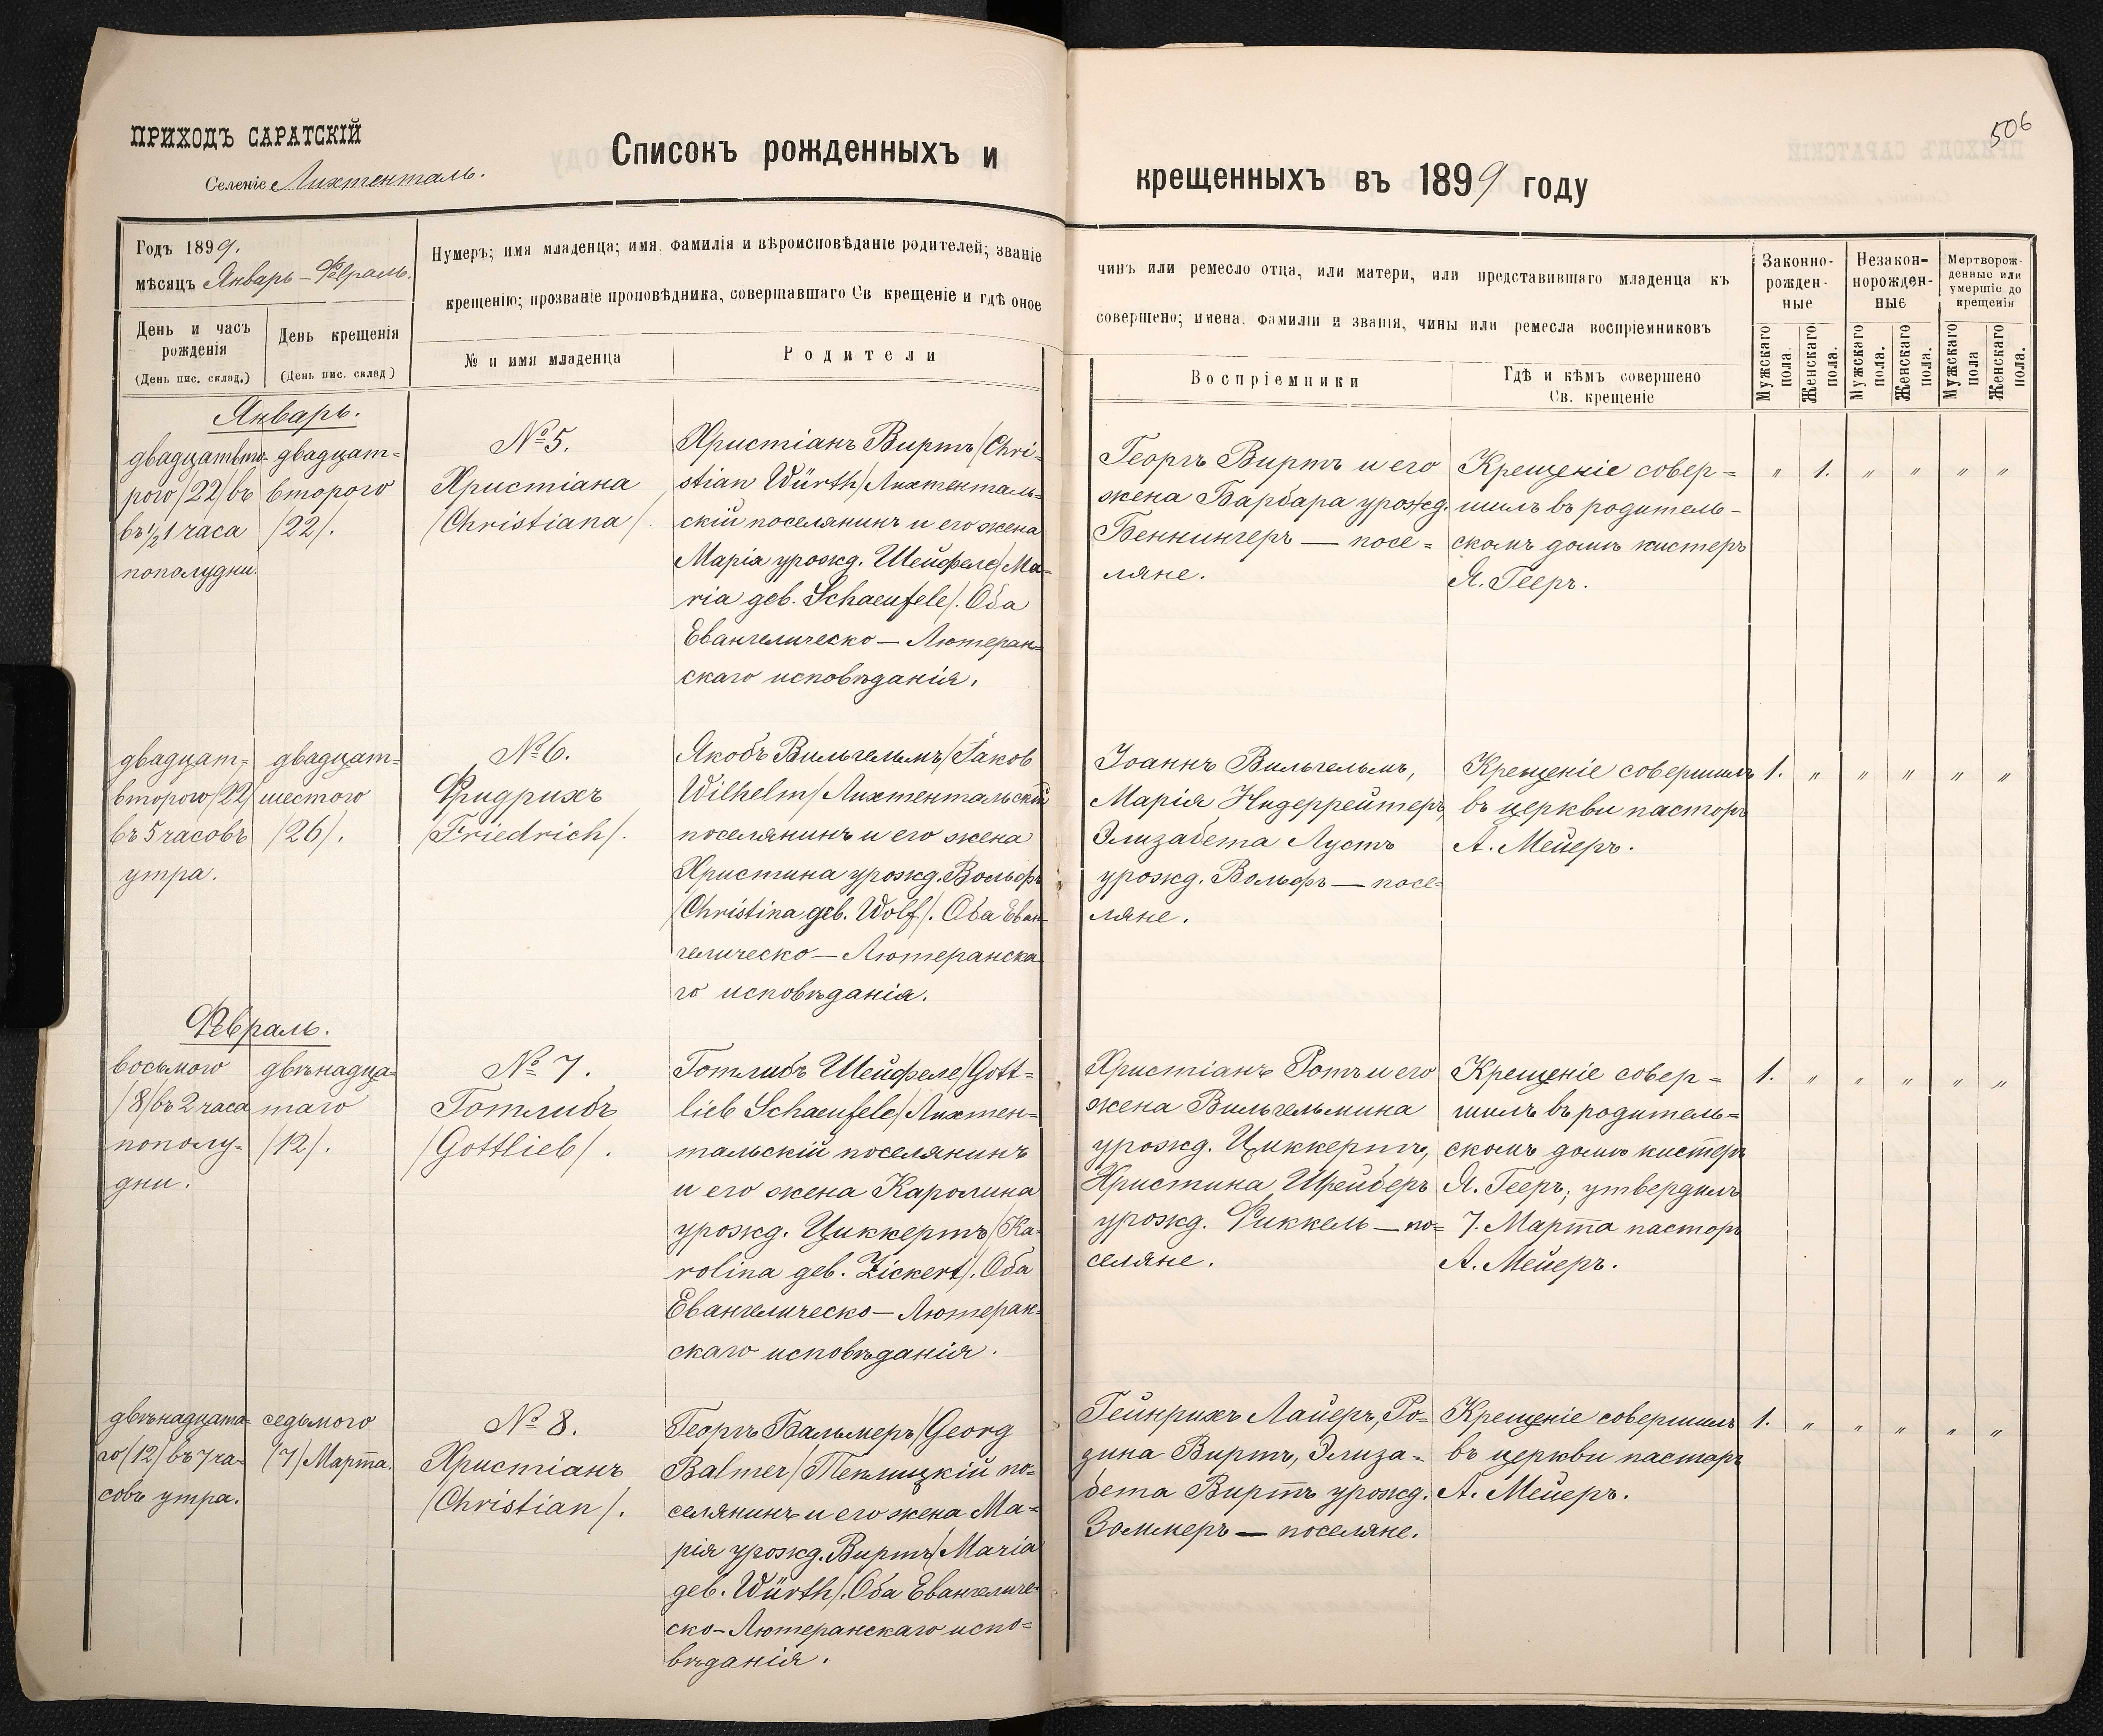 ПРИХОДЪ САРАТСКІЙ
Селеніе Лихтенталь.
Списокъ рожденныхъ и
крещенныхъ въ 1899 году
506
Годъ 1899.
мѣсяцъ Январь – Февраль.
Нумеръ; имя младенца; имя, фамилія и вѣроисповѣданіе родителей; званіе
крещенію; прозваніе проповѣдника, совершавшаго Св крещеніе и гдѣ оное
чинъ или ремесло отца, или матери, или представившаго младенца къ
совершено; имена. фамиліи и званія, чины или ремесла воспріемниковъ
Законно-
рожден-
ные
Незакон-
норожден-
ные
Мертворож-
денные или
умершіе до
крещенія
День и часъ
рожденія
(День пис. склад.)
День крещенія
(День пис. склад)
№ и имя младенца
Родители
Воспріемники
Гдѣ и кѣмъ совершено
Св. крещеніе
Мужскаго
пола.
Женскаго
пола.
Мужскаго
пола.
Женскаго
пола.
Мужскаго
пола
Женскаго
пола.
Январь.
двадцатьвто-
рого /22/ въ
въ ½ 1 часа
пополудни.
двадцат=
второго
/22/.
№ 5.
Христіана
/Christiana/.
Христіанъ Виртъ /Chri-
stian Würth/ Лихтенталь=
скій поселянинъ и его жена
Марія урожд. Шейфеле /Ma=
ria geb. Schaeufele/. Оба
Евангелическо — Лютеран=
скаго исповѣданія.
Георгъ Виртъ и его
жена Барбара урожд.
Беннингеръ — посе=
ляне.
Крещеніе совер=
шилъ въ родитель-
скомъ домѣ кистеръ
Я. Гееръ.
„ 1. „ „ „ „
двадцат=
второго /22/
въ 5 часовъ
утра.
двадцат=
шестого
/26/.
№ 6.
Фридрихъ
/Friedrich/.
Якобъ Вильгельмъ /Jakob
Wilhelm/ Лихтентальскій
поселянинъ и его жена
Христина урожд. Вольфъ
/Christina geb. Wolf/. Оба Еван-
гелическо — Лютеранска-
го исповѣданія.
Іоаннъ Вильгельмъ,
Марія Нидеррейтеръ,
Элизабета Лустъ
урожд. Вольфъ — посе=
ляне.
Крещеніе совершилъ
въ церкви пасторъ
А. Мейеръ.
1. „ „ „ „ „
Февраль.
восьмого
/8/ въ 2 часа
пополу-
дни.
двѣнадца-
таго
/12/.
№ 7.
Готлибъ
/Gottlieb/.
Готлибъ Шейфеле /Gott=
lieb Schaeufele/ Лихтен=
тальскій поселянинъ
и его жена Каролина
урожд. Циккертъ /Ka-
rolina geb. Zickert/. Оба
Евангелическо — Лютеран=
скаго исповѣданія.
Христіанъ Ротъ и его
жена Вильгельмина
урожд. Циккертъ,
Христина Шрейберъ
урожд. Фиккель — по=
селяне.
Крещеніе совер=
шилъ въ родитель=
скомъ домѣ кистеръ
Я. Гееръ; утвердилъ
7. Марта пасторъ
А. Мейеръ.
1. „ „ „ „ „
двѣнадцата-
го /12/ въ 7 ча-
совъ утра.
седьмого
/7/ Марта.
№ 8.
Христіанъ
/Christian/.
Георгъ Бальмеръ /Georg
Balmer/ Теплицкій по-
селянинъ и его жена Ма-
рія урожд. Виртъ /Maria
geb. Würth/. Оба Евангеличе-
ско-Лютеранскаго испо=
вѣданія.
Гейнрихъ Лайеръ, Ро=
зина Виртъ, Элиза-
бета Виртъ урожд.
Зоммеръ — поселяне.
Крещеніе совершилъ
въ церкви пасторъ
А. Мейеръ.
1. „ „ „ „ „